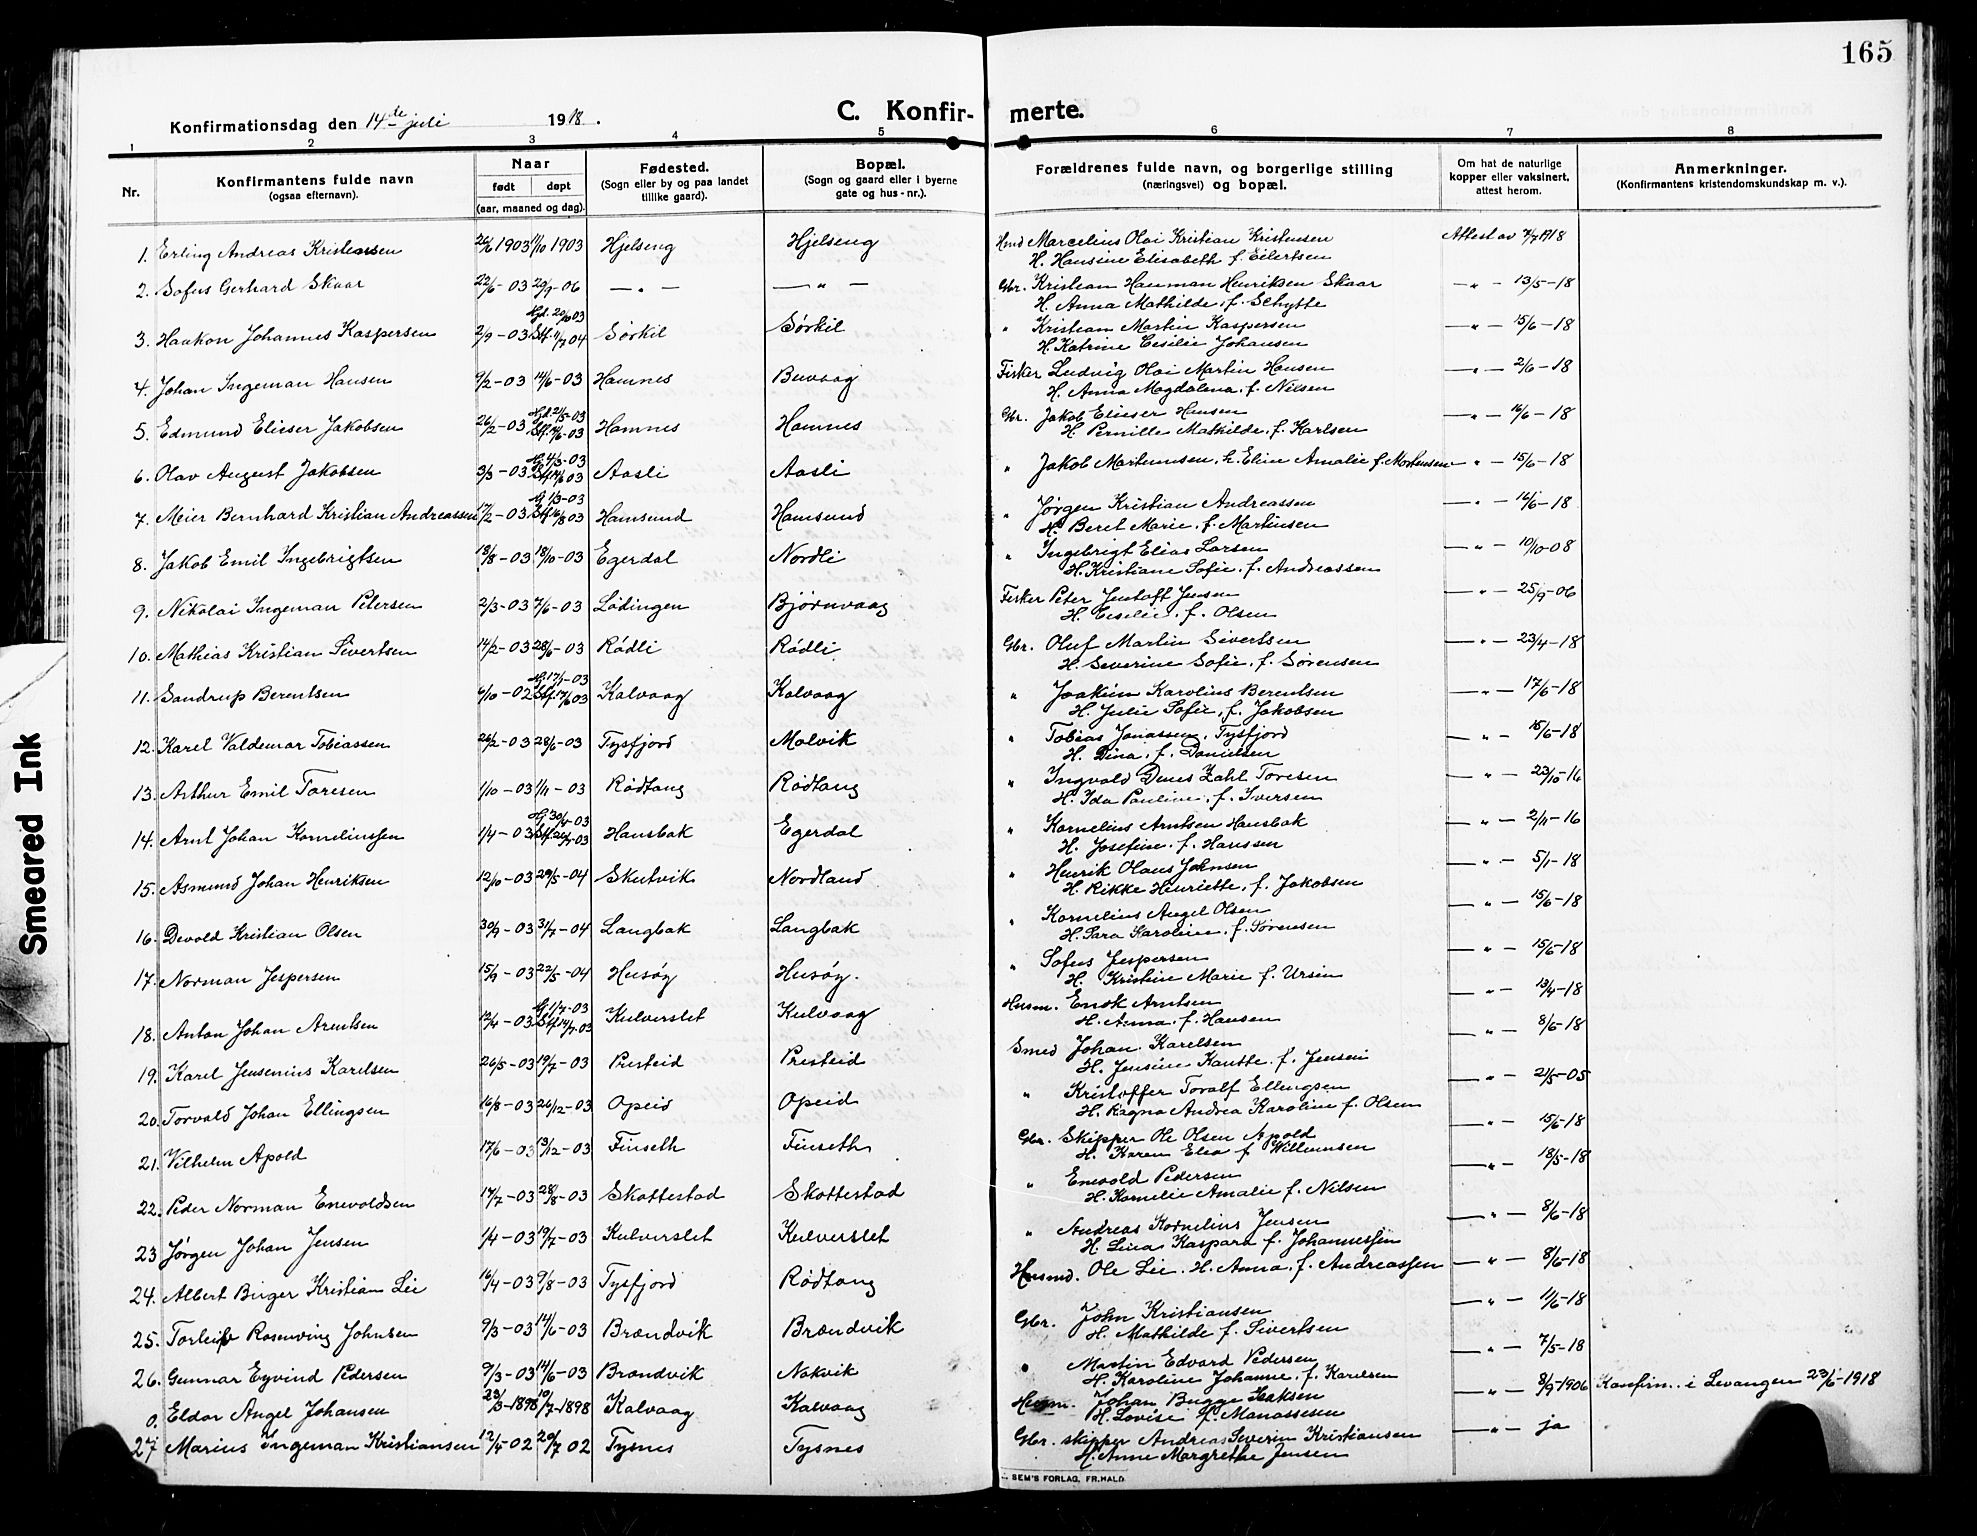 165
C. Konfirmerte.
Konfirmationsdag den 14de juli 1918.
1 2 3 4 5 6 7 8
Nr.
Konfirmantens fulde navn
(ogsaa efternavn).
Naar
født døpt
(aar, maaned og dag).
Fødested.
(Sogn eller by og paa landet
tillike gaard).
Bopæl.
(Sogn og gaard eller i byerne
gate og hus-nr.).
Forældrenes fulde navn, og borgerlige stilling
(næringsvei) og bopæl.
Om hat de naturlige
kopper eller vaksinert,
attest herom.
Anmerkninger.
(Konfirmantens kristendomskundskap m. v.).
1. Erling Andreas Kristensen 26/6 1903 11/10 1903 Hjelseng Hjelseng Hmd Marcelius Olai Kristian Kristensen Attest av 7/7 1918
H. Hansine Elisabeth f. Eilertsen
2. Sofus Gerhard Skaar 22/6-03 29/9-06 — " — — " — Gbr. Kristian Hauman Henriksen Skaar — " — 13/5-18
H. Anna Mathilde, f. Schytte
3. Haakon Johannes Kaspersen 2/9-03 Hjd. 20/10 03 Stf. 11/7 04 Sørkil Sørkil " Kristian Martin Kaspersen — " — 15/6-18
H. Katrine Cesilie Johansen
4. Johan Ingeman Hansen 9/2-03 14/6-03 Hamnes Buvaag Fisker Ludvig Olai Martin Hansen — " — 2/6-18
H. Anna Magdalena, f. Nilsen
5. Edmund Elieser Jakobsen 26/2-03 Hjd. 2/5-03 Stf. 14/6-03 Hamnes Hamnes Gbr. Jakob Elieser Hansen — " — 16/6-18
H. Pernille Mathilde, f. Karlsen
6. Olav August Jakobsen 3/3-03 Hj. 4/3-03 Stf. 14/6 03 Aasli Aasli " Jakob Martinusen, h. Eline Amalie f. Mortensen — " — 15/6-18
7. Meier Bernhard Kristian Andreassen 17/2-03 Hj 1/3-03 Stf. 16/8 03 Hamsund Hamsund " Jørgen Kristian Andreassen — " — 16/6-18
H. Beret Marie, f. Martinsen
8. Jakob Emil Ingebrigtsen 13/8-03 18/10-03 Egerdal Nordli " Ingebrigt Elias Larsen — " — 10/10-08
H. Kristiane Sofie, f. Andreassen
9. Nikolai Ingeman Petersen 2/3-03 7/6-03 Lødingen Bjørnvaag Fisker Peter Justoft Jensen — " — 25/9-06
H. Cesilie, f. Olsen
10. Mathias Kristian Sivertsen 14/2-03 28/6-03 Rødli Rødli Gbr. Oluf Martin Sivertsen — " — 23/4-18
H. Severine Sofie, f. Sørensen
11. Sandrup Berentsen 4/10-02 Hj. 17/1-03 Stf. 17/6 03 Kalvaag Kalvaag " Joakim Karolius Berentsen — " — 17/6-18
H. Julie Sofie, f. Jakobsen
12. Karel Valdemar Tobiassen 26/2-03 28/6-03 Tysfjord Molvik " Tobias Jonassen, Tysfjord — " — 15/6-18
H. Dina, f. Danielsen
13. Arthur Emil Toresen 1/10-03 1/11-03 Rødtang Rødtang " Ingvald Denes Zahl Toresen — " — 23/10-16
H. Ida Pauline, f. Iversen
14. Arnt Johan Korneliussen 1/4-03 Hj. 30/4-03 Hansbak Egerdal " Kornelius Arntsen Hansbak — " — 2/11-16
H. Josefine, f. Hanssen
15. Asmund Johan Henriksen 12/10-03 29/5-04 Skutvik Nordland " Henrik Olaus Johnsen — " — 5/1-18
H. Rikke Henriette, f. Jakobsen
16. Devold Kristian Olsen 30/9-03 31/7-04 Langbak Langbak " Kornelius Angel Olsen — " — 15/6-18
H. Sara Karoline, f. Sørensen
17. Norman Jespersen 15/9-03 22/5-04 Husøy Husøy. " Sofus Jespersen — " — 15/6-18
H. Kristine Marie f. Ursin
18. Anton Johan Arentsen 12/4-03 Hj. 1/7-03 Stf. 14/7-03 Kulverslet Kulvaag Husm. Enok Arntsen — " — 13/4-18
H. Anna, f. Hansen
19. Karel Jensenius Karelsen 26/5-03 19/7-03 Presteid Presteid Smed Johan Karelsen — " — 8/6-18
H. Jensine Kantte, f. Jensen
20. Torvald Johan Ellingsen 16/8-03 26/12-03 Opeid Opeid " Kristoffer Toralf Ellingsen — " — 2/5-05
H. Ragna Andrea Karoline f. Olsen
21. Vilhelm Apold 17/6-03 13/12-03 Finseth Finseth Gbr. Skipper Ole Olsen Apold — " — 15/6-18
H. Karen Elea f. Williumsen
22. Peder Norman Enevoldsen 17/7-03 28/8-03 Skottestad Skottestad " Enevold Pedersen — " — 18/5-18
H. Kornelie Amalie f. Nilsen
23 Jørgen Johan Jensen 1/4-03 19/7-03 Kulverslet Kulverslet " Andreas Kornelius Jensen — " — 8/6-18
H. Lina Kaspara f. Johannessen
24. Albert Birger Kristian Lie 16/4-03 9/8-03 Tysfjord Rødtang Husmd. Ole Lie. H. Anna, f. Andreassen — " — 8/6-18
25. Torleif Rosenving Johnsen 9/3-03 14/6-03 Brændvik Brændvik Gbr. John Kristiansen — " — 11/6-18
H. Mathilde f. Sivertsen
26. Gunnar Eyvind Pedersen 9/3-03 14/6-03 Brændvik Nakvik " Martin Edvard Pedersen — " — 7/5-18
H. Karoline Johanne, f. Karelsen
0. Eldar Angel Johansen 23/3-1898 10/7-1898 Kalvaag Kalvaag Husm. Johan Bugge Isaksen — " — 8/9-1906 Konfirm. i Levangen 23/6-1918
H. Lovise f. Manassesen
27 Marius Ingeman Kristiansen 12/4-02 20/7 02 Tysnes Tysnes Gbr. skipper Andreas Severin Kristiansen — " — ja
H. Anne Margrethe Jensen
SEM'S FORLAG, FR.HALD.
Smeared Ink